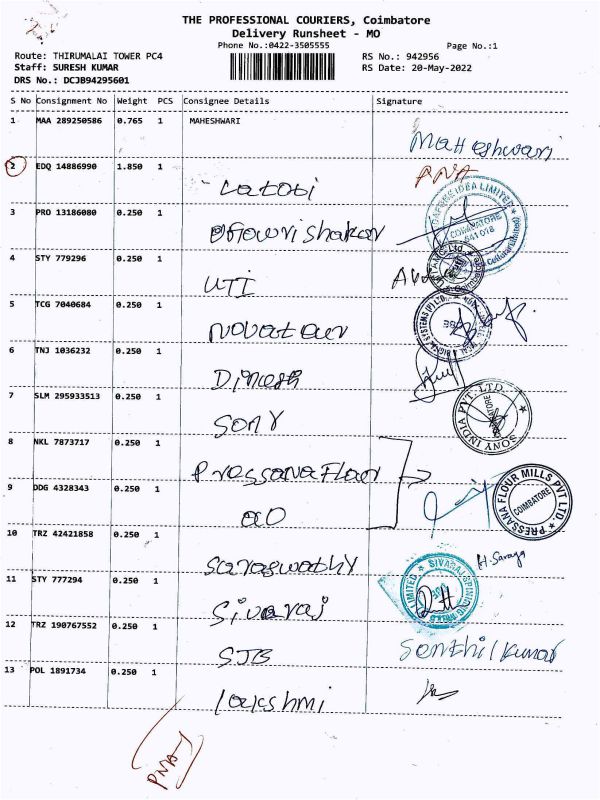 THE PROFESSIONAL COURIERS, Coimbatore
Delivery Runsheet - MO
Phone No.:0422-3505555
Page No.:1
Route: THIRUMALAI TOWER PC4
RS No.: 942956
Staff: SURESH KUMAR
RS Date: 20-May-2022
DRS No.: DCJB94295601
S No Consignment No Weight PCS Consignee Details Signature
1 MAA 289250586 0.765 1 MAHESHWARI Maheshwari
2 EDQ 14886990 1.850 1 PNA
3 PRO 13186080 0.250 1 COIMBATORE 641018
4 STY 779296 0.250 1
UTI
5 TCG 7040684 0.250 1
Novateur
6 TNJ 1036232 0.250 1
Dinesh
7 SLM 295933513 0.250 1 SONY INDIA PVT. LTD. COIMBATORE
SONY
8 NKL 7873717 0.250 1
Pressana Flour
9 DDG 4328343 0.250 1 PRESSANA FLOUR MILLS PVT LTD COIMBATORE
do
10 TRZ 42421858 0.250 1 H.Saraga
Saraswathy
11 STY 777294 0.250 1 SIVARAJ SPINNING MILLS LIMITED
Sivaraj
12 TRZ 190767552 0.250 1 Senthil kumar
SJB
13 POL 1891734 0.250 1
lakshmi
PNA-1